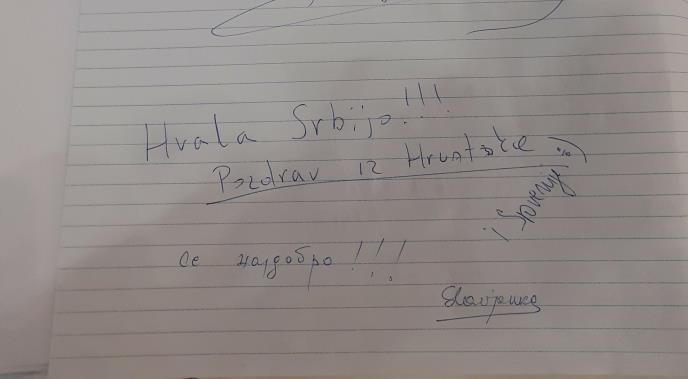 Hvala Srbijo!!!
Pozdrav iz Hrvatske :)
i Slovenije
се најдобро!!!